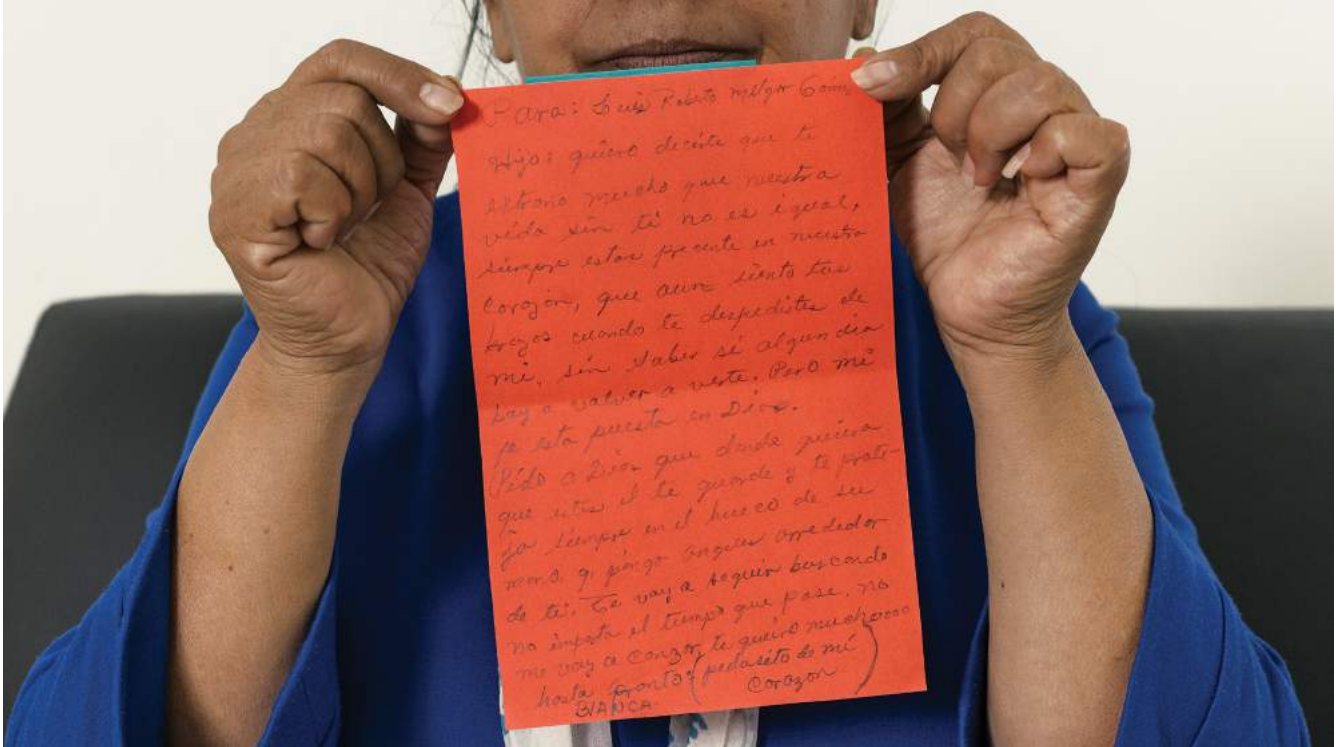 Para: Luis Roberto melgar Góm
Hijo: quiero decirte que te
extraño mucho que nuestra
vida sin ti no es igual,
siempre estas precente en nuestro
corazón, que aun siento tus
brazos cuando te despedistes de
mi, sin saber si algun dia
voy a volver a verte. Pero mi
fe esta puesta en Dios.
Pido a Dios que donde quiera
que estes el te guarde y te prote-
ja siempre en el hueco de su
mano q, ponga angeles arrededor
de ti. Te voy a seguir buscando
no importa el tiempo que pase, no
me voy a canzar, te quiero muchooooo
hasta pronto: (pedasito de mí
corazon)
BLANCA